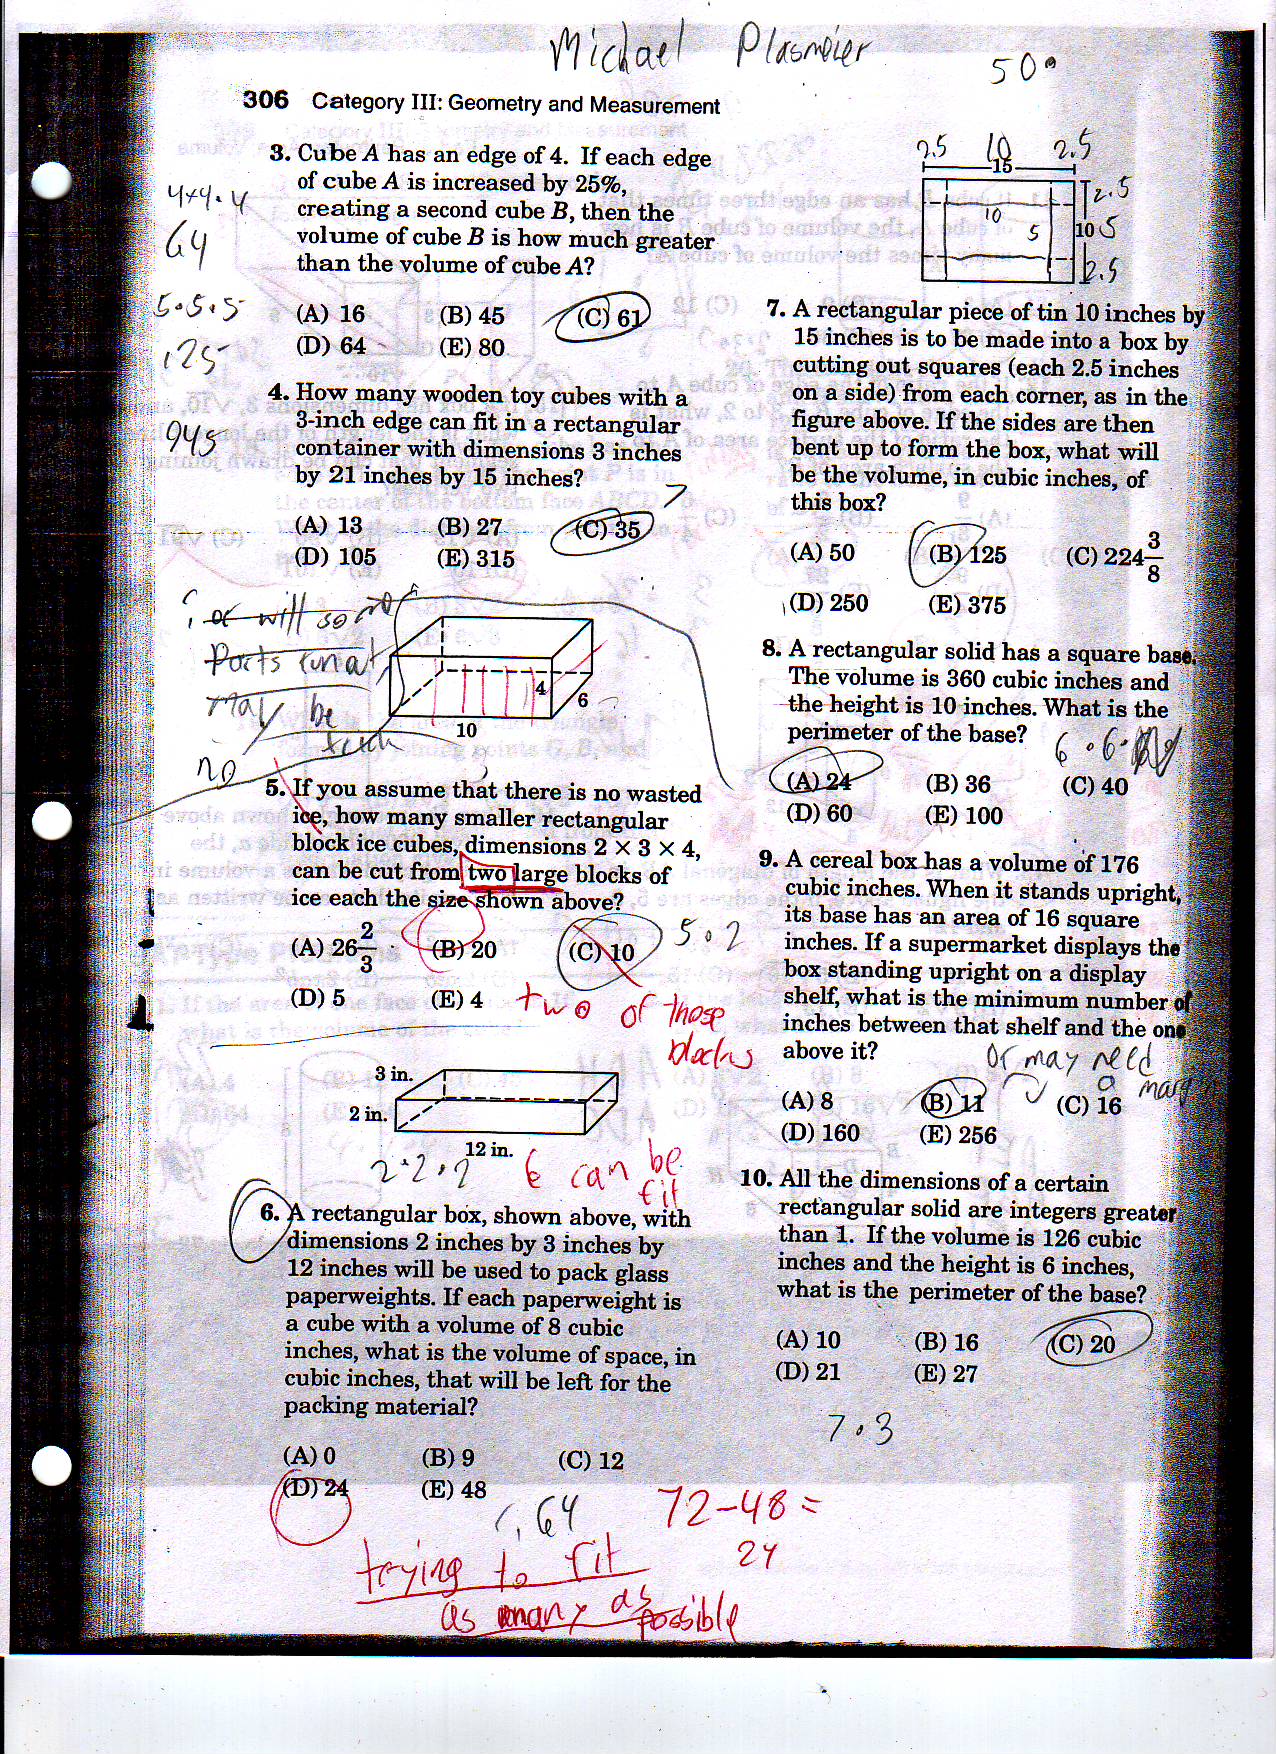 Michael Plasmeier
50
306 Category III: Geometry and Measurement
3. Cube A has an edge of 4. If each edge
of cube A is increased by 25%,
creating a second cube B, then the
volume of cube B is how much greater
than the volume of cube A?
4×4·4
64
5·5·5
125
(A) 16 (B) 45 (C) 61
(D) 64 (E) 80
4. How many wooden toy cubes with a
3-inch edge can fit in a rectangular
container with dimensions 3 inches
by 21 inches by 15 inches?
945
7
(A) 13 (B) 27 (C) 35
(D) 105 (E) 315
or will some
Parts
may be
no
4
6
10
5. If you assume that there is no wasted
ice, how many smaller rectangular
block ice cubes, dimensions 2 × 3 × 4,
can be cut from two large blocks of
ice each the size shown above?
(A) 26 2/3 (B) 20 (C) 10
5·2
(D) 5 (E) 4
two of those
blocks
3 in.
2 in.
12 in.
2·2·2
6 can be
fit
6. A rectangular box, shown above, with
dimensions 2 inches by 3 inches by
12 inches will be used to pack glass
paperweights. If each paperweight is
a cube with a volume of 8 cubic
inches, what is the volume of space, in
cubic inches, that will be left for the
packing material?
(A) 0 (B) 9 (C) 12
(D) 24 (E) 48
64
72-48=
24
trying to fit
as many as
possible
2.5 10 2.5
15
2.5
10
5
10 5
2.5
7. A rectangular piece of tin 10 inches by
15 inches is to be made into a box by
cutting out squares (each 2.5 inches
on a side) from each corner, as in the
figure above. If the sides are then
bent up to form the box, what will
be the volume, in cubic inches, of
this box?
(A) 50 (B) 125 (C) 224 3/8
(D) 250 (E) 375
8. A rectangular solid has a square base.
The volume is 360 cubic inches and
the height is 10 inches. What is the
perimeter of the base?
6·6·
(A) 24 (B) 36 (C) 40
(D) 60 (E) 100
9. A cereal box has a volume of 176
cubic inches. When it stands upright,
its base has an area of 16 square
inches. If a supermarket displays the
box standing upright on a display
shelf, what is the minimum number of
inches between that shelf and the one
above it?
Or may need
a
(A) 8 (B) 11 (C) 16
(D) 160 (E) 256
10. All the dimensions of a certain
rectangular solid are integers greater
than 1. If the volume is 126 cubic
inches and the height is 6 inches,
what is the perimeter of the base?
(A) 10 (B) 16 (C) 20
(D) 21 (E) 27
7·3